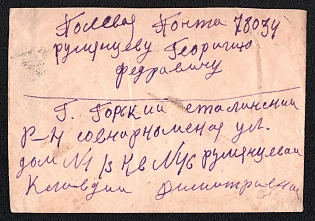 Полевая Почта 78034
румянцеву Георгию
Федравичу
Г. Горький сталинский
Р-Н совнаркомская ул.
дом №1/3 Кв №46 румянцевай
Клавдии Димитривне